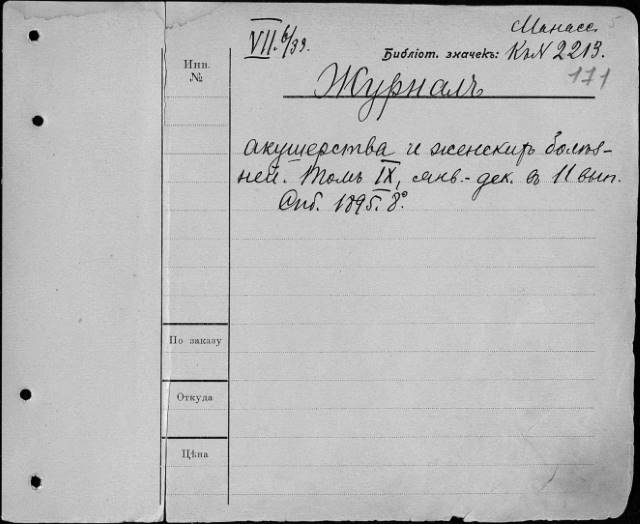 Манасс.
VII. 6/39.
Библіот. значекъ: КъN 2213.
171
Инв. №
Журналъ
акушерства и женскихъ болѣз-
ней. Томъ IX, янв.-дек. въ 11 вып.
Спб. 1895. 8°.
По заказу
Откуда
Цѣна